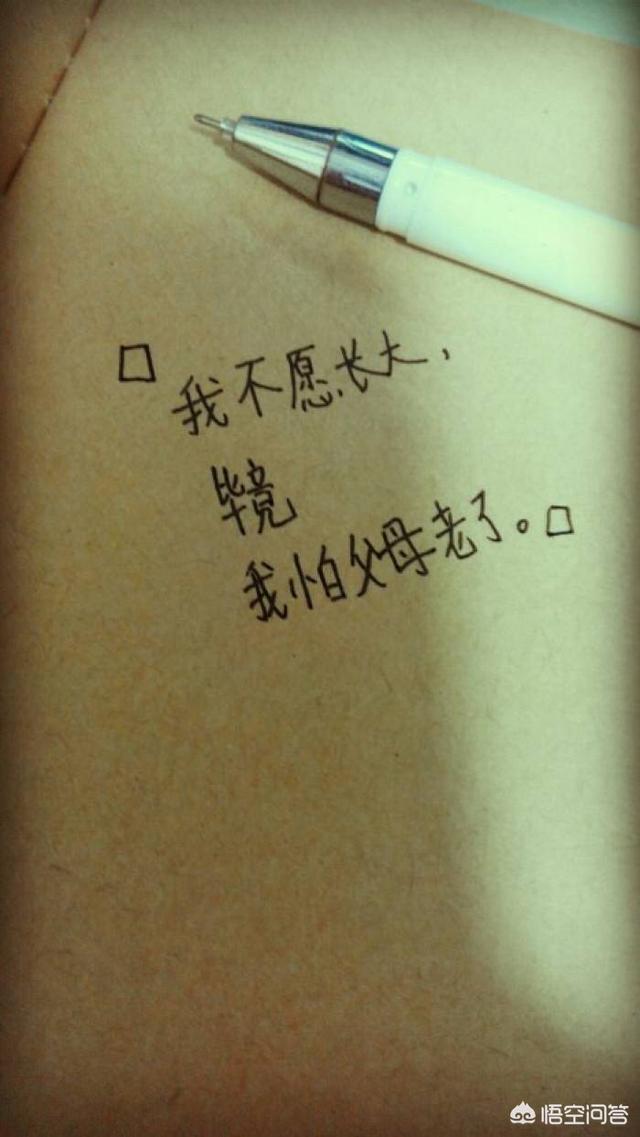 □我不愿长大,
毕竟
我怕父母老了。□
悟空问答